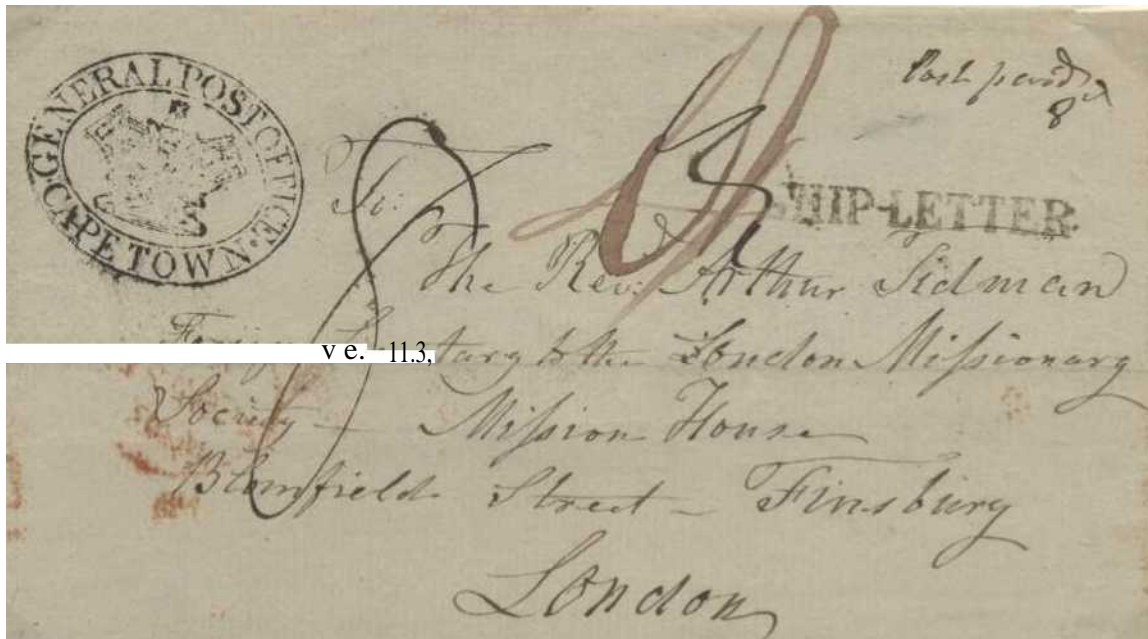 GENERAL POST OFFICE.
CAPE TOWN.
Post paid
8d
SHIP-LETTER
To:
The Rev: Arthur Tidman
tary to the London Missionary
v e. 11.3,
Society — Mission House
Blomfield Street — Finsbury
London